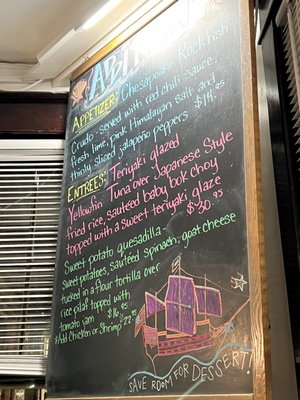 APPETIZER: Chesapeake Rockfish
Crudo - served with red chili sauce,
fresh lime, pink Himalayan salt and
thinly sliced jalapeño peppers
$14.95
ENTREES: Teriyaki glazed
Yellowfin Tuna over Japanese Style
fried rice, sautéed baby bok choy
topped with a sweet teriyaki glaze
$30.95
Sweet potato quesadilla -
Sweet potatoes, sauteed spinach, goat cheese
tucked in a flour tortilla over
rice pilaf topped with
tomato jam $16.95
*Add Chicken or Shrimp $22.95
SAVE ROOM FOR DESSERT!